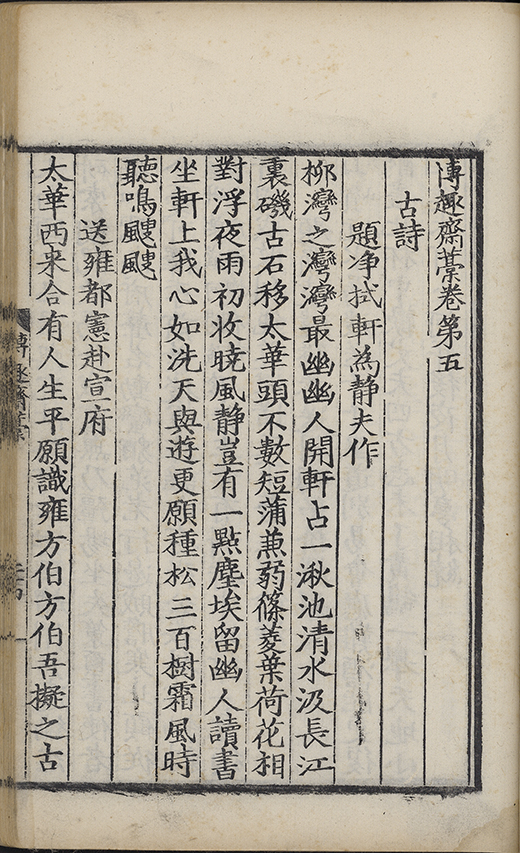 博趣齋藁卷第五
古詩
題净拭軒為静夫作
柳灣之灣灣最幽幽人開軒占一湫池清水汲長江
裏磯古石移太華頭不數短蒲蒹弱篠菱葉荷花相
對浮夜雨初收曉風静豈有一點塵埃留幽人讀書
坐軒上我心如洗天與遊更願種松三百樹霜風時
聽鳴颼颼
送雍都憲赴宣府
太華西来合有人生平願識雍方伯方伯吾擬之古
博趣齋藁